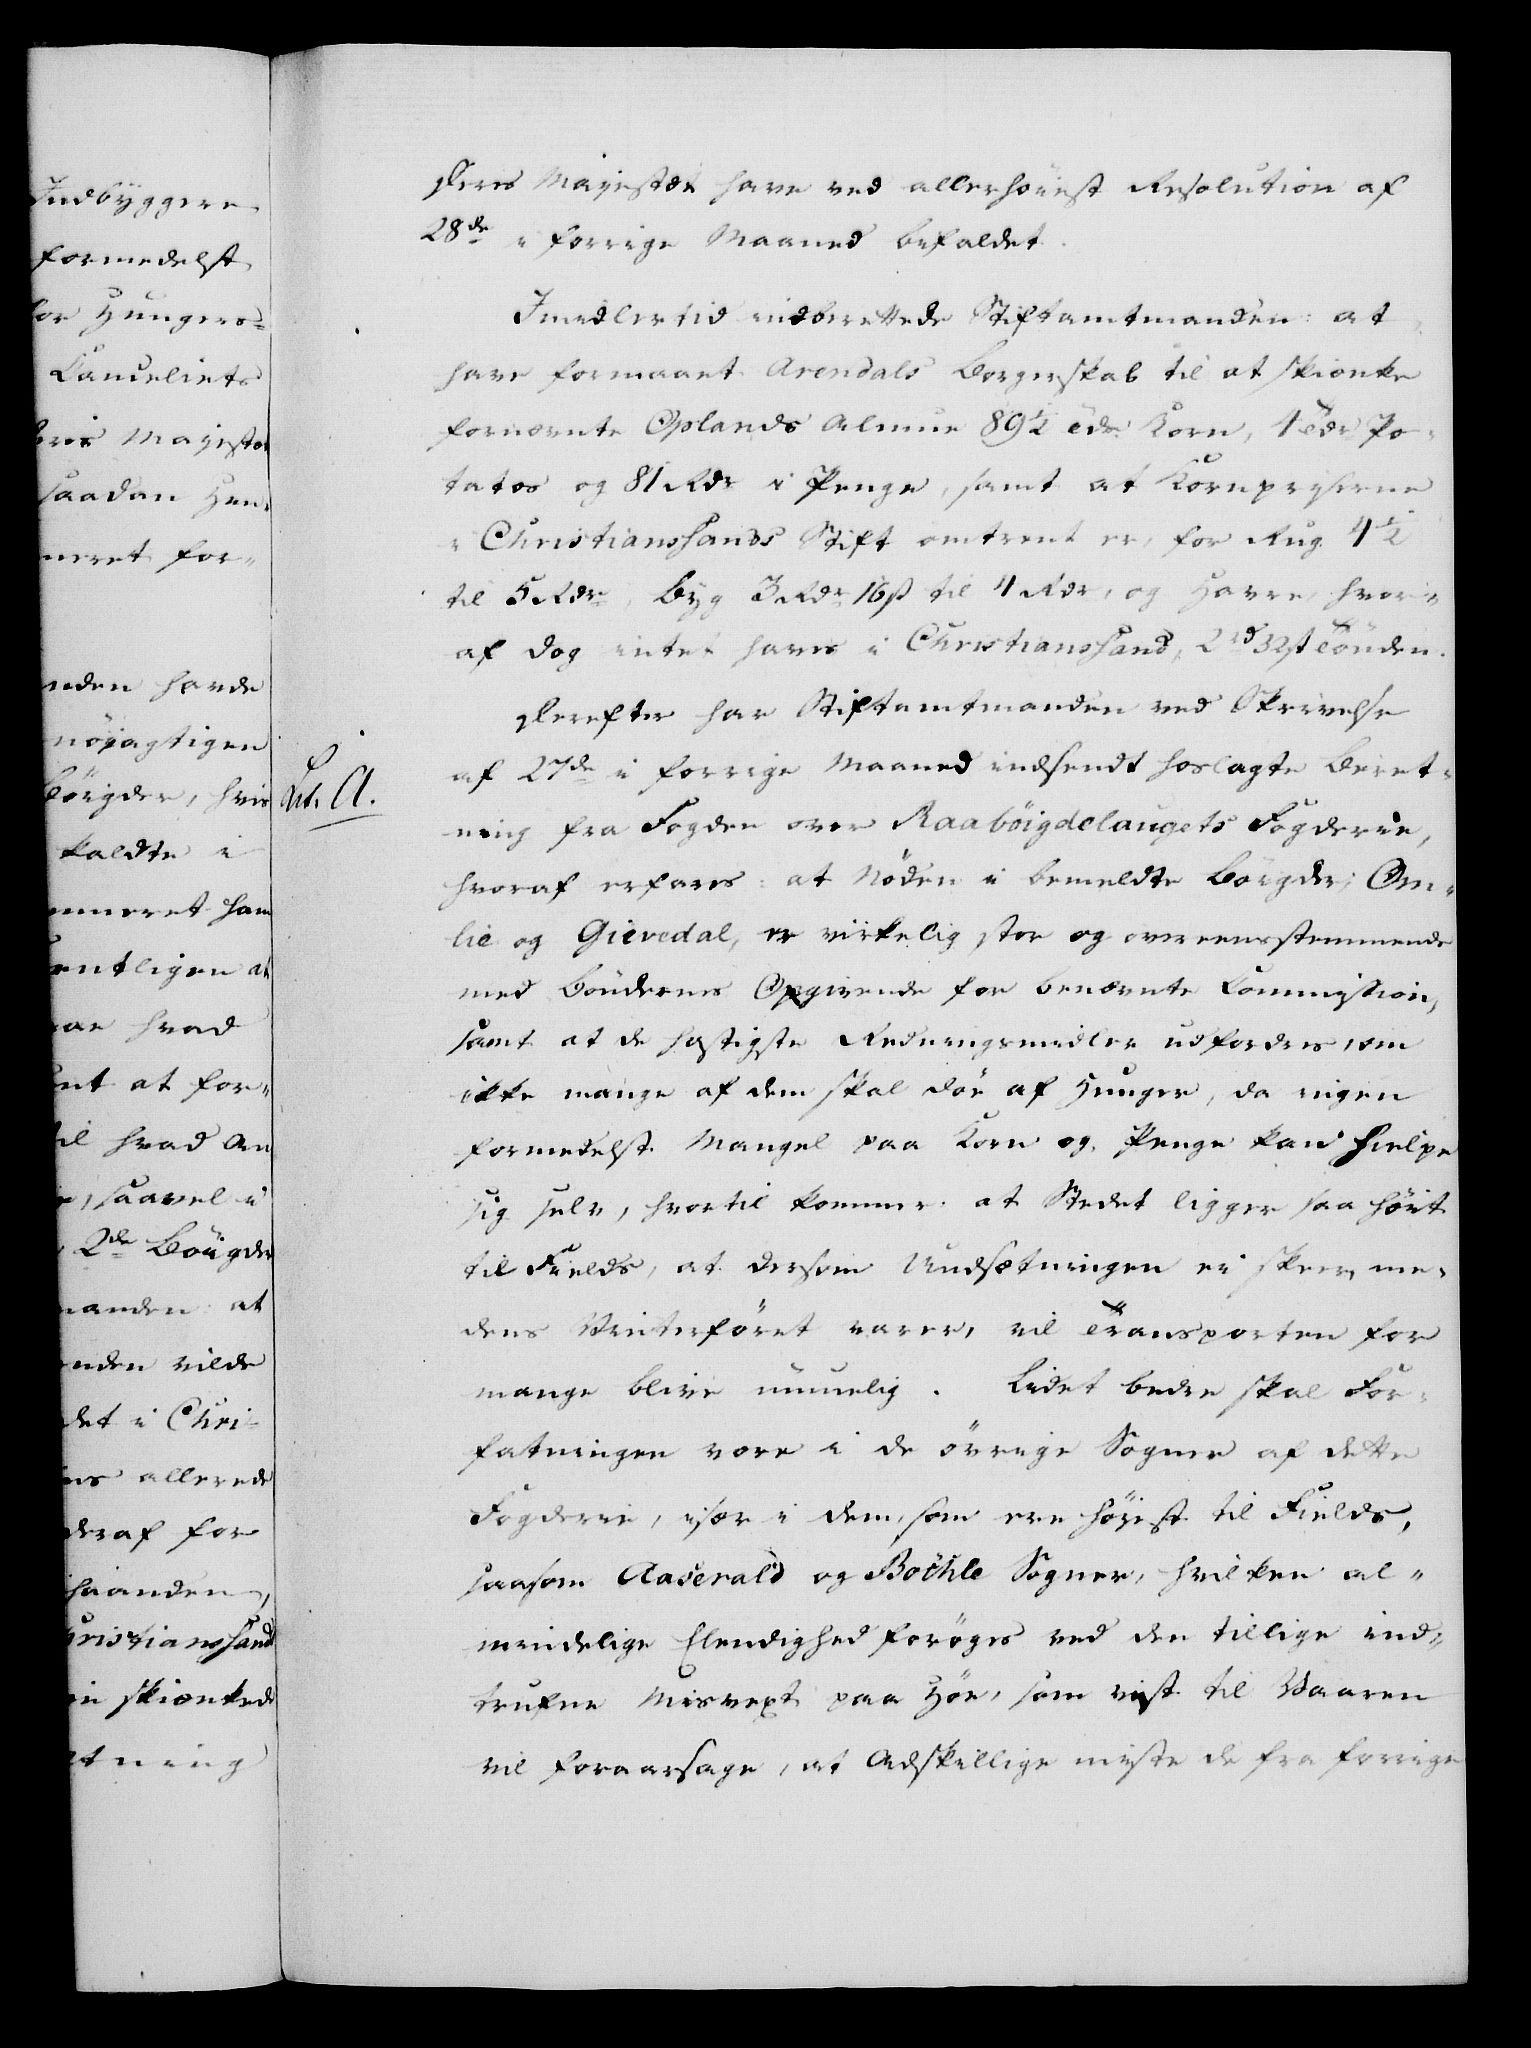 Indbyggere
formedelst
for Hungers-
Cancelliets
Deres Majestæt
saadan Hen-
neret for-
nden havde
nöiagtigen
Böigder, hvis
kaldte i
nneret ham
entligen at
hvad
nt at for-
til hvad An
saavel i
2de Böigder
manden at
nden vilde
det i Chri-
ns allerede
deraf for
haanden,
Christianssand
skienkede
tning
Deres Majestæt have ved allerhöiest Resolution af
28de i forrige Maaned befaldet.
Imidlertid indberettede Stiftamtmanden: at
have formaaet Arendals Borgerskab til at skienke
fornævnte Oplands Almue 89½ Tdr Korn, 1 Tdr Po-
tatos og 81 Rdr i Penge, samt at Kornpriserne
i Christianssands Stift omtrent er, for Rug 4½
til 5 Rdr, Byg 3 Rdr 16 ß til 4 Rdr, og Havre, hvor-
af dog intet haves i Christianssand, 2 rd 32 ß Tönden.
Derefter har Stiftamtmanden ved Skrivelse
Lit. A.
af 27de i forrige Maaned indsendt hoslagte Beret-
ning fra Fogden over Raaböigdelaugets Fogderie,
hvoraf erfares: at Nöden i bemeldte Böigder, Om-
lie og Gievedal, er virkelig stor og overeensstemmende
med Böndernes Opgivende for benævnte Commission,
samt at de hastigste Redningsmidler udfordres, om
ikke mange af dem skal döe af Hunger, da ingen
formedelst Mangel paa Korn og Penge kan hielpe
sig selv, hvortil kommer at Stedet ligger saa höit
til Fields, at dersom Undsætningen ei skeer, me-
dens Vinterföret varer, vil Transporten for
mange blive umuelig. Lidet bedre skal For-
fatningen være i de övrige Sogner af dette
Fogderie, især i dem, som ere höiest til Fields,
saasom Aaserald og Böihle Sogner, hvilken al-
mindelige Elendighed foröges ved den tillige ind-
trufne Misvext paa Höe, som vist til Vaaren
vil foraarsage, at Adskillige miste de fra forrige